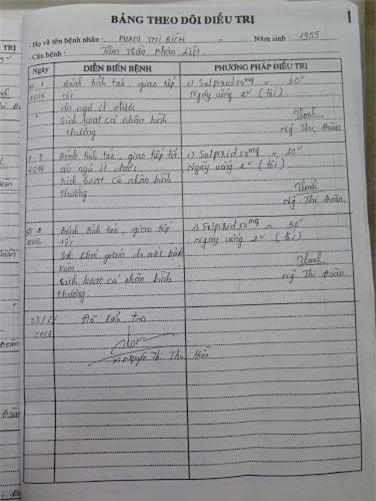 BẢNG THEO DÕI ĐIỀU TRỊ
Họ và tên bệnh nhân: PHAN THỊ BÍCH Năm sinh 1955
Căn bệnh: Tâm thần phân liệt
Ngày DIỄN BIẾN BỆNH PHƯƠNG PHÁP ĐIỀU TRỊ
Bệnh tỉnh táo, giao tiếp 1) Sulpirid 50mg x 30v
2016 tốt Ngày uống 2v (tối)
ăn ngủ ít được
Sinh hoạt cá nhân bình
thường
Ng. Thị Đoàn
Bệnh tỉnh táo, giao tiếp tốt 1) Sulpirid 50mg x 30v
2016 ăn ngủ ít được Ngày uống 2v (tối)
Sinh hoạt cá nhân bình
thường
Ng. Thị Đoàn
Bệnh tỉnh táo, giao tiếp 1) Sulpirid 50mg x 30v
2016 tốt ngày uống 2v (tối)
Sức khoẻ giảm do mắt
kém
Sinh hoạt cá nhân bình
thường
Ng. Thị Đoàn
Đã kiểm tra
2016
Nguyễn Thị Thu Hiền